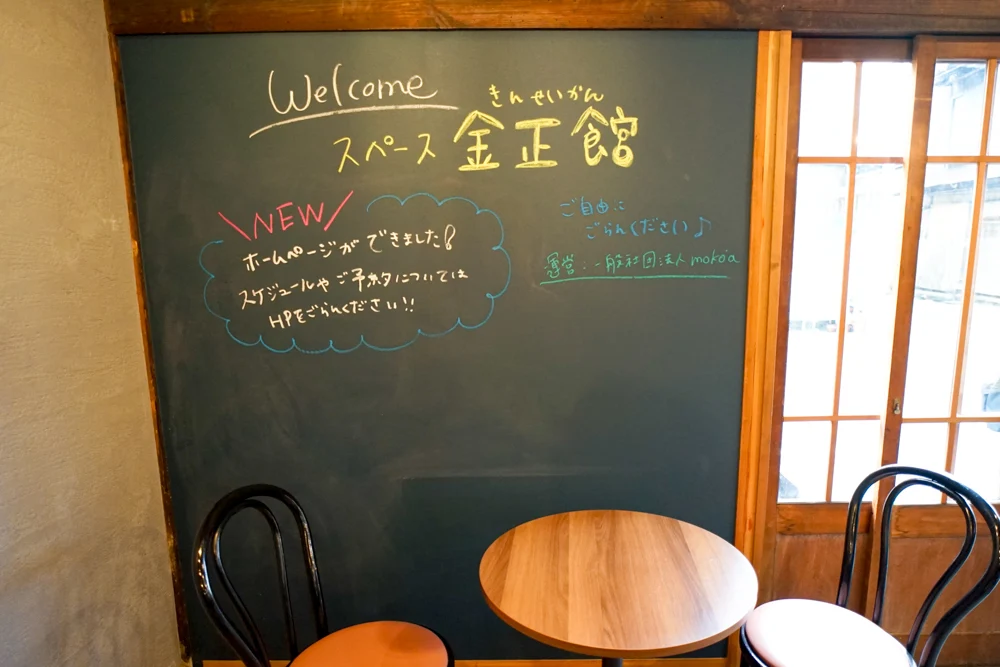 Welcome
きんせいかん
スペース 金正館
\NEW/
ホームページができました!
スケジュールやご予約については
HPをごらんください!!
ご自由に
ごらんください♪
運営:一般社団法人mokoa